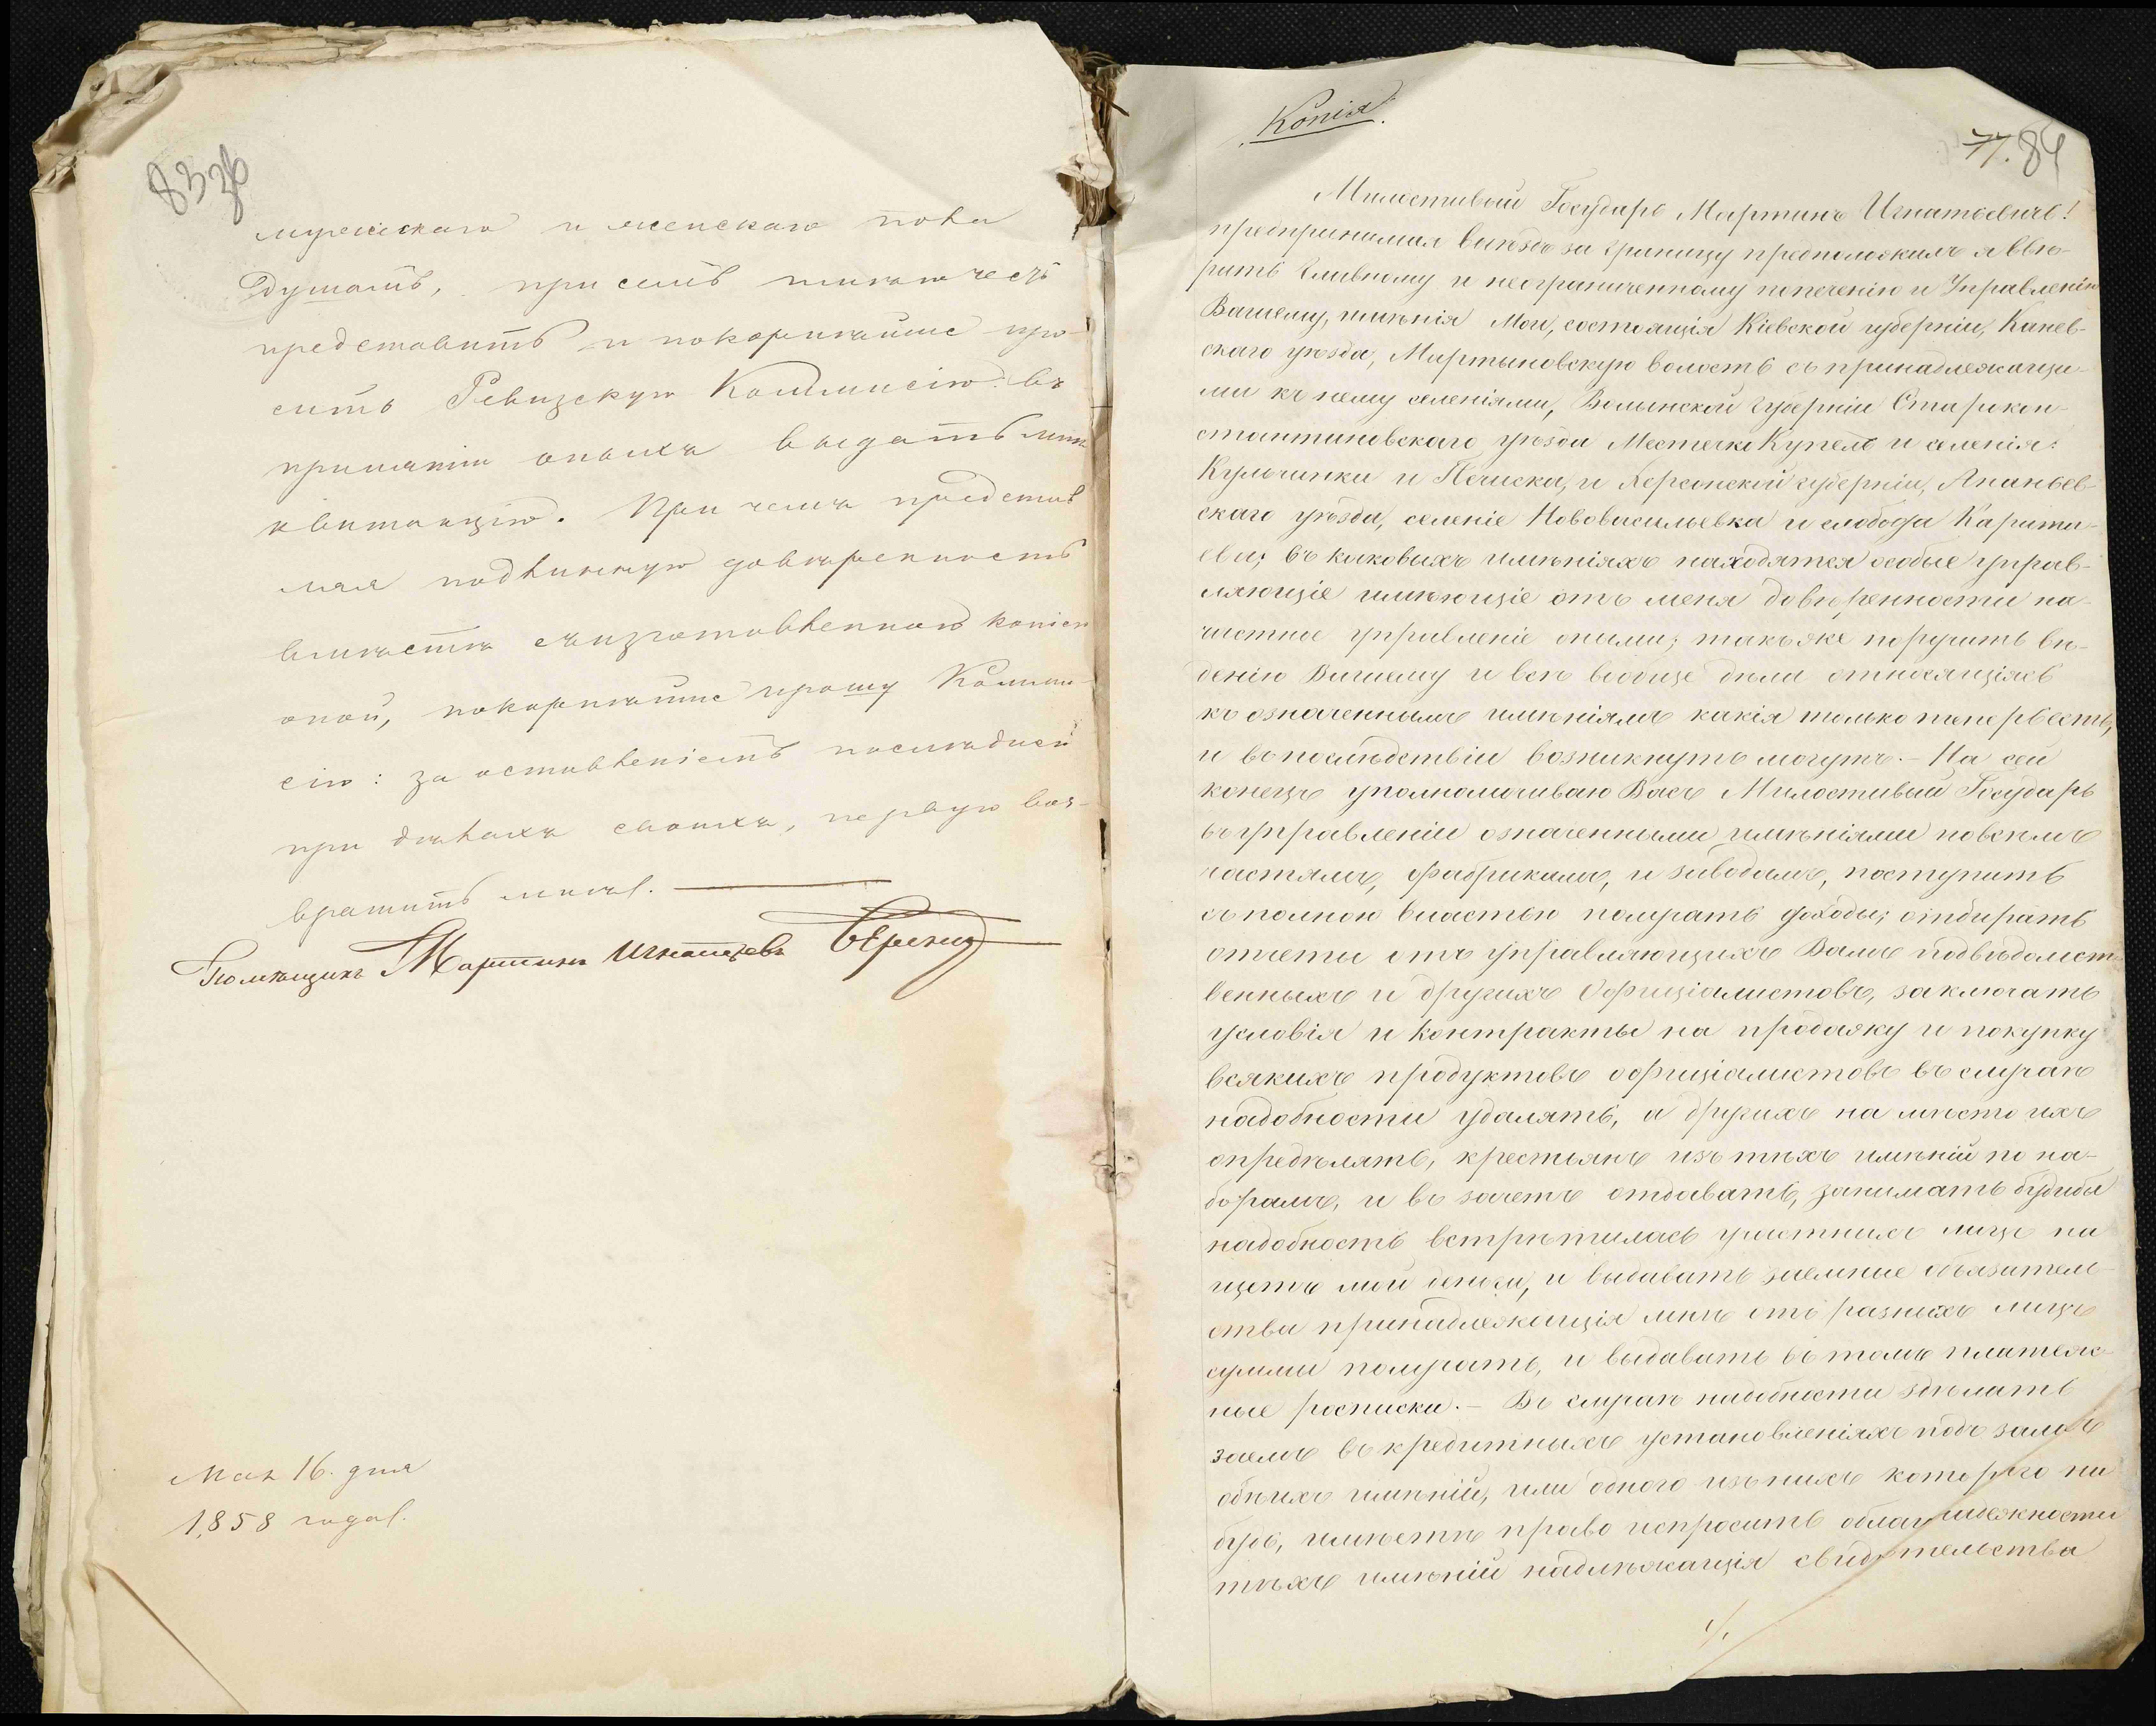 83 зв
мужескаго и женскаго пола
душамъ, при семъ имѣю честь
представить и покорнѣйше про-
сить Ревизскую Коммисію: въ
принятіи оныхъ выдать мнѣ
квитанцію. При чемъ представ
ляя подлинную довѣренность
вмѣстѣ съ изготовленною копіею
оной, покорнѣйше прошу Комми-
сію: за оставленіемъ послѣдней
при дѣлахъ своихъ, первую воз-
вратить мнѣ.
Помѣщикъ Мартинъ Игнатьевъ
Мая 16. дня
1858 года.
Копія.
77. 84
Милостивый Государь Мартинъ Игнатьевичъ!
предпринимая выѣздъ за границу предположилъ я ввѣ-
рить главному и неограниченному попеченію и Управленію
Вашему, имѣнія Мои, состоящія Кіевской губерніи, Канев-
скаго уѣзда, Мартыновскую волость съ принадлежащи-
ми къ нему селеніями, Волынской Губерніи Старокон-
стантиновскаго уѣзда Местечко Купель и селенія:
Кульчинки и Печиска, и Херсонской губерніи, Ананьев-
скаго уѣзда, селеніе Нововасильевка и слобода Карита-
ева; въ каковыхъ имѣніяхъ находятся особые управ-
ляющіе имѣющіе отъ меня довѣренности на
частное управленіе оными; такъ же поручить вѣ-
денію Вашему и всѣ вообще дѣла относящіясь
къ означеннымъ имѣніямъ какія только теперь есть,
и въ послѣдствіи возникнуть могутъ. – На сей
конецъ уполномочиваю Васъ Милостивый Государь
въ управленіи означенными имѣніями по всѣмъ
частямъ, фабрикамъ, и заводамъ, поступить
съ полною властью получать доходы; отбирать
отчеты отъ управляющихъ Вамъ подвѣдомст
венныхъ и другихъ Оффиціалистовъ, заключать
условія и контракты на продажу и покупку
всякихъ продуктовъ оффиціалистовъ въ случаѣ
надобности удалять, а другихъ на мѣсто ихъ
опредѣлять, крестьянъ изъ тѣхъ имѣній по на-
борамъ, и въ зачетъ отдавать, занимать будебы
надобность встрѣтилась у частныхъ лицъ на
щетъ мой деньги, и выдавать заемные обязатель-
ства принадлежащія мнѣ отъ разныхъ лицъ
суммы получать, и выдавать въ томъ платеж-
ные росписки. – Въ случаѣ надобности здѣлать
заемъ въ кредитныхъ установленіяхъ подъ залогъ
обѣихъ имѣній, или одного изъ нихъ которого ни
будь, имѣете право испросить облагонадежности
тѣхъ имѣній надлѣжащія свидѣтельства